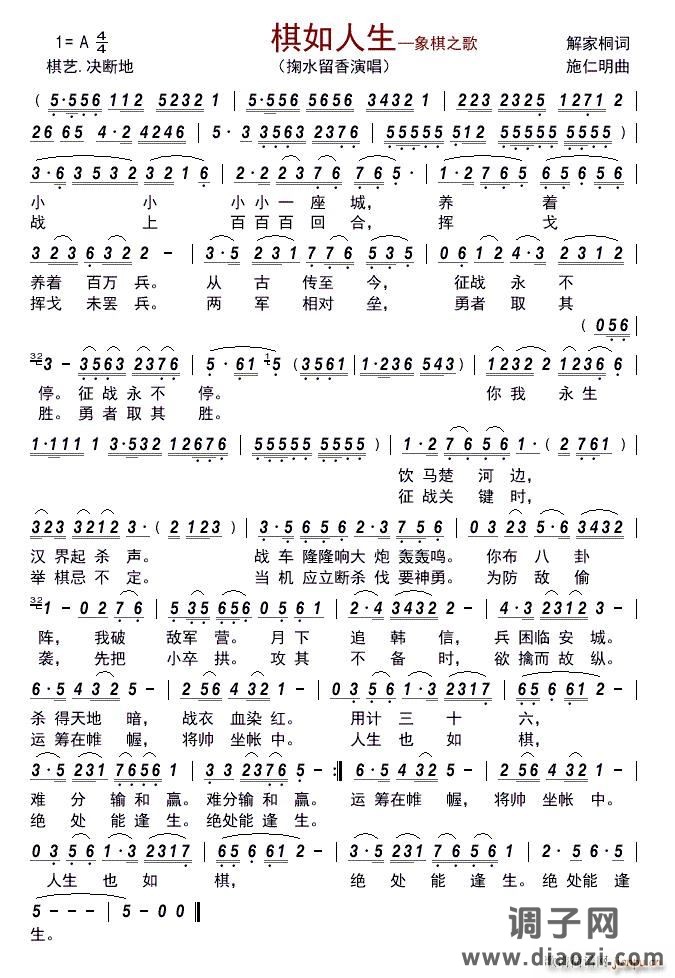 棋如人生—象棋之歌
1=A 4/4
解家桐词
棋艺.决断地
（掬水留香演唱）
施仁明曲
( 5·556 112 5232 1 | 5·556 5656 3432 1 | 223 2325 1272 6 |
26 65 4·2 4246 | 5·3 3563 2376 | 55555 512 55555 5555 )
3·6 3532 3216 | 2·2 2376 765· | 1·2 765 65656
小 小 小小一座城， 养 着
战 上 百百百回合， 挥 戈
323 6322 - | 3·5 231 776 535 | 0612 43 2312
养着 百万 兵。 从 古 传至 今， 征战 永 不
挥戈 未罢 兵。 两 军 相对 垒， 勇者 取 其
( 056
3 - 3563 2376 | 5·61 5 ( 3561 | 1·236 543 ) | 1232 1236 6
停。征战永不 停。 你我 永生
胜。勇者取其 胜。
1·111 1 3·532 12676 | 55555 5555 ) | 1·2 76 56 1· ( 2761 )
饮马楚 河边，
征战关 键时，
323 3212 3· ( 2 123 ) | 3·5 656 2·3 756 | 03 23 5·6 3432
汉 界起 杀 声。 战 车 隆隆响大 炮 轰轰鸣。 你布 八 卦
举 棋忌 不 定。 当 机 应立断杀 伐 要神勇。 为防 敌 偷
1 - 02 76 | 5 35 656 1 1 | 2·4 3432 3 | 5·3 2312 2
阵， 我破 敌军 营。月下 追 韩 信，兵 困临 安 城。
袭，先把 小卒 拱。攻其 不 备 时，欲 擒而 故 纵。
6·5 4 32 5 - | 2 56 4 32 1 | 03 56 1·3 2317 | 65 661 2
杀 得天地 暗， 战衣 血染 红。 用计 三 十 六，
运 筹在帷 幄， 将帅 坐帐 中。 人生 也 如 棋，
3·5 231 7656 5 | 3 3 2376 5 - :|| 6·5 4 32 5 | 2 56 4 32 1
难 分 输 和 赢。难分输 和 赢。 运 筹在帷 幄，将帅 坐帐 中。
绝 处 能 逢 生。绝处能 逢 生。
03 56 1·3 2317 | 65 661 2 | 3·5 231 7656 5 | 2·5 656·
人生 也 如 棋， 绝 处 能 逢 生。绝处能逢
5 - - - | 5 - 00 ||
生。
调子网
www.diaozi.com